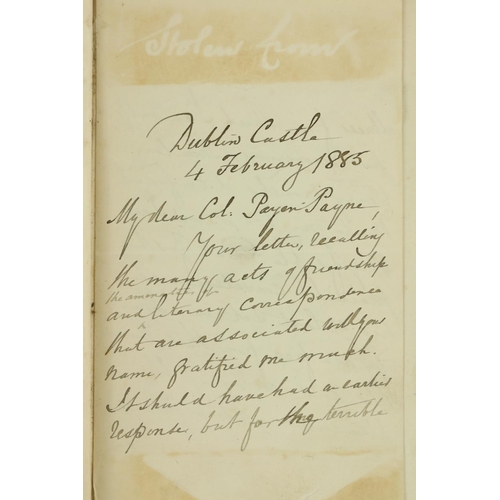 Stolen from
Dublin Castle
4 February 1885
My dear Col. Payen-Payne,
Your letter, recalling
the many acts of friendship
and literary correspondence
that are associated with your
name, gratified me much.
It should have had an earlier
response, but for my terrible